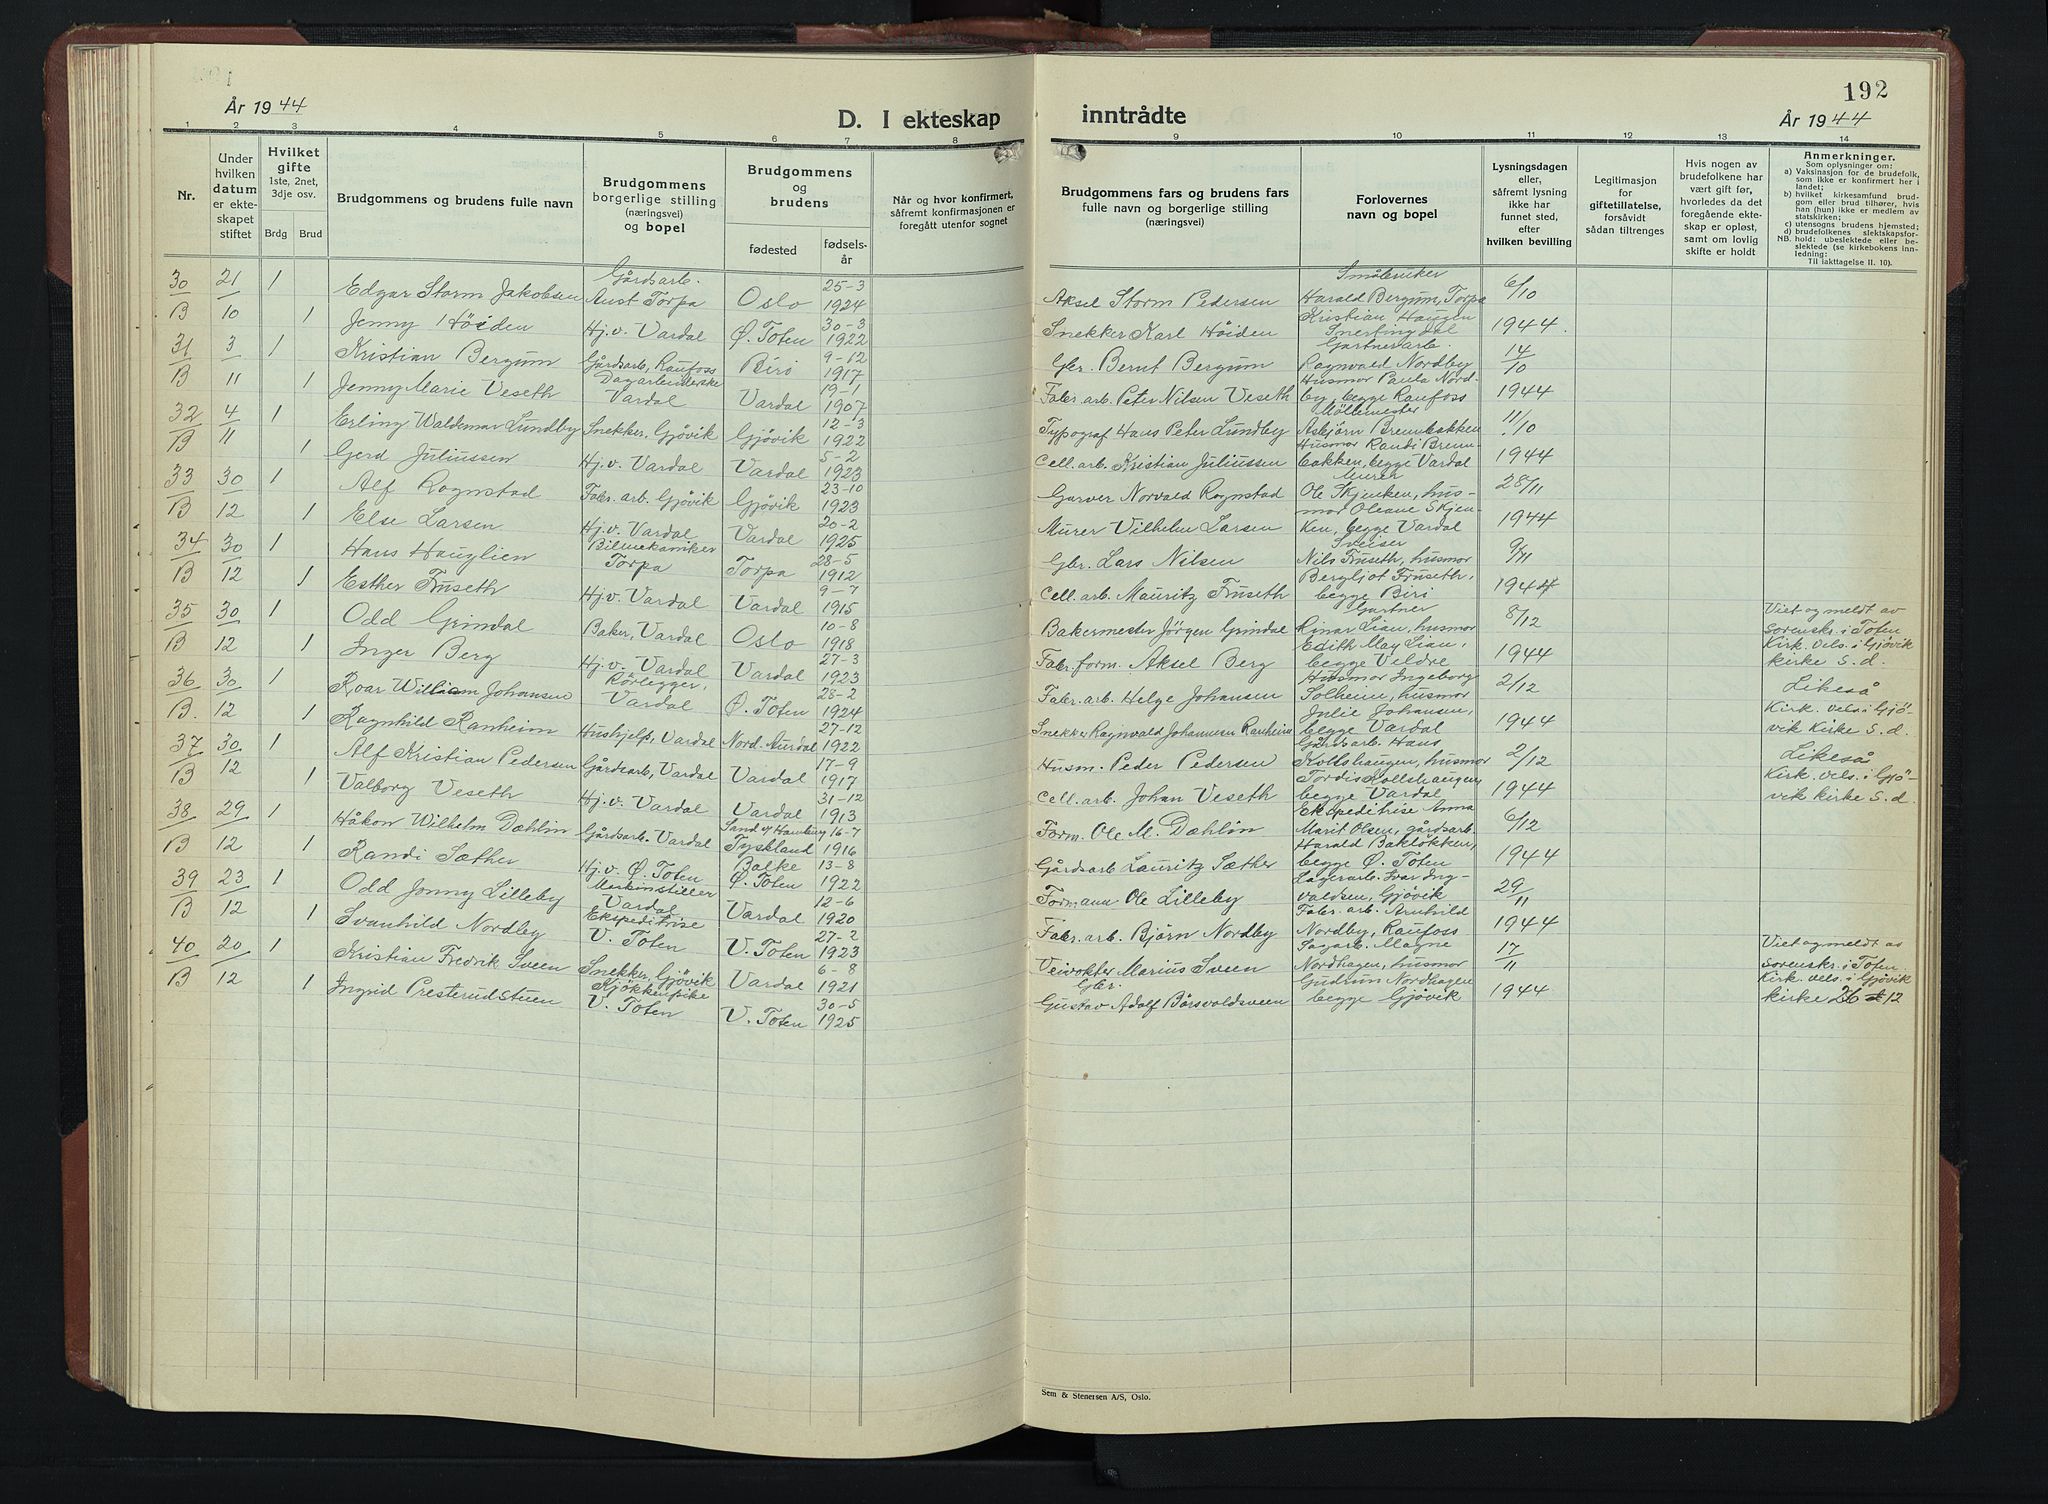 192
År 1944
D. I ekteskap inntrådte
År 1944
1 2 3 4 5 6 7 8 9 10 11 12 13 14
Nr.
Under
hvilken
datum
er ekte-
skapet
stiftet
Hvilket
gifte
1ste, 2net,
3dje osv.
Brdg Brud
Brudgommens og brudens fulle navn
Brudgommens
borgerlige stilling
(næringsvei)
og bopel
Brudgommens
og
brudens
fødested
fødsels-
år
Når og hvor konfirmert,
såfremt konfirmasjonen er
foregått utenfor sognet
Brudgommens fars og brudens fars
fulle navn og borgerlige stilling
(næringsvei)
Forlovernes
navn og bopel
Lysningsdagen
eller,
såfremt lysning
ikke har
funnet sted,
efter
hvilken bevilling
Legitimasjon
for
giftetillatelse,
forsåvidt
sådan tiltrenges
Hvis nogen av
brudefolkene har
vært gift før,
hvorledes da det
foregående ekte-
skap er opløst,
samt om lovlig
skifte er holdt
Anmerkninger.
Som oplysninger om:
a) Vaksinasjon for de brudefolk,
som ikke er konfirmert her i
landet;
b) hvilket kirkesamfund brud-
gom eller brud tilhører, hvis
han (hun) ikke er medlem av
statskirken;
c) utensogns brudens hjemsted;
d) brudefolkenes slektskapsfor-
NB. hold: ubeslektede eller be-
slektede (se kirkebokens inn-
ledning:
Til iakttagelse II. 10).
30 B 21/10 1 Edgar Storm Jakobsen Gårdsarb. Aust Torpa Oslo 25-3 1924 Aksel Storm Pedersen Småbruker Harald Bergum, Torpa 6/10
1 Jenny Höiden Hj.v. Vardal Ø. Toten 30-3 1922 Snekker Karl Höiden Kristian Haugen Snertingdal 1944.
31 B 3/11 1 Kristian Bergum Gårdsarb, Raufoss Biri 9-12 1917 Gbr. Bernt Bergum Gartnerarb. Ragnvald Nordby 14/10
1 Jenny Marie Veseth Dagarbeiderske Vardal Vardal 19-1 1907 Fabr. arb. Peter Nilsen Veseth Husmor Paula Nord- by, begge Raufoss 1944
32 B 4/11 1 Erling Waldemar Lundby Snekker, Gjövik Gjövik 12-3 1922 Typograf Hans Peter Lundby Möllemester Asbjörn Brennbakken 11/10
1 Gerd Juliussen Hj.v. Vardal Vardal 5-2 1923 Cell. arb. Kristian Juliussen Husmor Randi Brenn- bakken, begge Vardal 1944
33 B 30/12 1 Alf Rognstad Fabr. arb. Gjövik Gjövik 23-10 1923 Garver Norvald Rognstad Murer Ole Skjenken, hus- 28/11
1 Else Larsen Hj.v. Vardal Vardal 20-2 1925 Murer Vilhelm Larsen mor Oleane Skjen- ken, begge Vardal 1944
34 B 30/12 1 Hans Hauglien Bilmekaniker Torpa Torpa 28-5 1912 Gbr. Lars Nilsen Sveiser Nils Fruseth, husmor 9/11
1 Esther Fruseth Hj.v. Vardal Vardal 9-7 1915 Cell. arb. Mauritz Fruseth Bergljot Fruseth, begge Biri 1944
35 B 30/12 1 Odd Grindal Baker, Vardal Oslo 10-8 1918 Bakermester Jörgen Grindal Gartner Einar Lian, husmor 8/12 Viet og meldt av sorenskr. i Toten
1 Inger Berg Hj.v. Vardal Vardal 27-3 1923 Fabr. form. Aksel Berg Edith May Lian, begge Veldre 1944 Kirk. vels. i Gjövik kirke s.d.
36 B. 30/12 1 Roar William Johansen Rörlegger, Vardal Ø. Toten 28-2 1924 Fabr. arb. Helge Johansen Husmor Ingeborg Solheim, husmor 2/12 Likeså
1 Ragnhild Ranheim Hushjelp, Vardal Nord. Aurdal 27-12 1922 Snekker Ragnvald Johannesen Ranheim Julie Johansen, begge Vardal 1944 Kirk. vels. i Gjö- vik kirke s.d.
37 B 30/12 1 Alf Kristian Pedersen Gårdsarb, Vardal Vardal 17-9 1917 Husm. Peder Pedersen Gårdsarb. Hans Kolbshaugen, husmor 2/12 Likeså
1 Valborg Veseth Hj.v. Vardal Vardal 31-12 1913 Cell. arb. Johan Veseth Tordis Kollshaugen, begge Vardal 1944 Kirk. vels. i Gjö- vik kirke s.d.
38 B 29/12 1 Håkon Wilhelm Dæhlin Gårdsarb. Vardal Sand v/ Hamburg Tyskland 16-7 1916 Form. Ole M. Dæhlin Ekspeditrise Anna Marit Olsen, gårdsarb. 6/12
1 Randi Sæther Hj.v. Ø. Toten Balke Ø. Toten 13-8 1922 Gårdsarb Lauritz Sæther Harald Baklökken, begge Ø. Toten 1944
39 B 23/12 1 Odd Jonny Lilleby Maskinstiller Vardal Vardal 12-6 1920 Formann Ole Lilleby Lagerarb. Ivar Ing- valdsen, Gjövik 29/11
1 Svanhild Nordby Ekspeditrise V. Toten V. Toten 27-2 1923 Fabr. arb. Björn Nordby Fabr. arb. Arnhild Nordby, Raufoss 1944
40 B 20/12 1 Kristian Fredrik Sveen Snekker, Gjövik Vardal 6-8 1921 Veivokter Marius Sveen Sagarb. Magne Nordhagen, husmor 17/11 Viet og meldt av sorenskr. i Toten
1 Ingrid Presterudstuen Kjökkenpike V. Toten V. Toten 30-5 1925 Gbr. Gustav Adolf Bårsvoldsveen Gudrun Nordhagen begge Gjövik 1944 Kirk. vels. i Gjövik kirke 26 12
Sem & Stenersen A/S, Oslo.